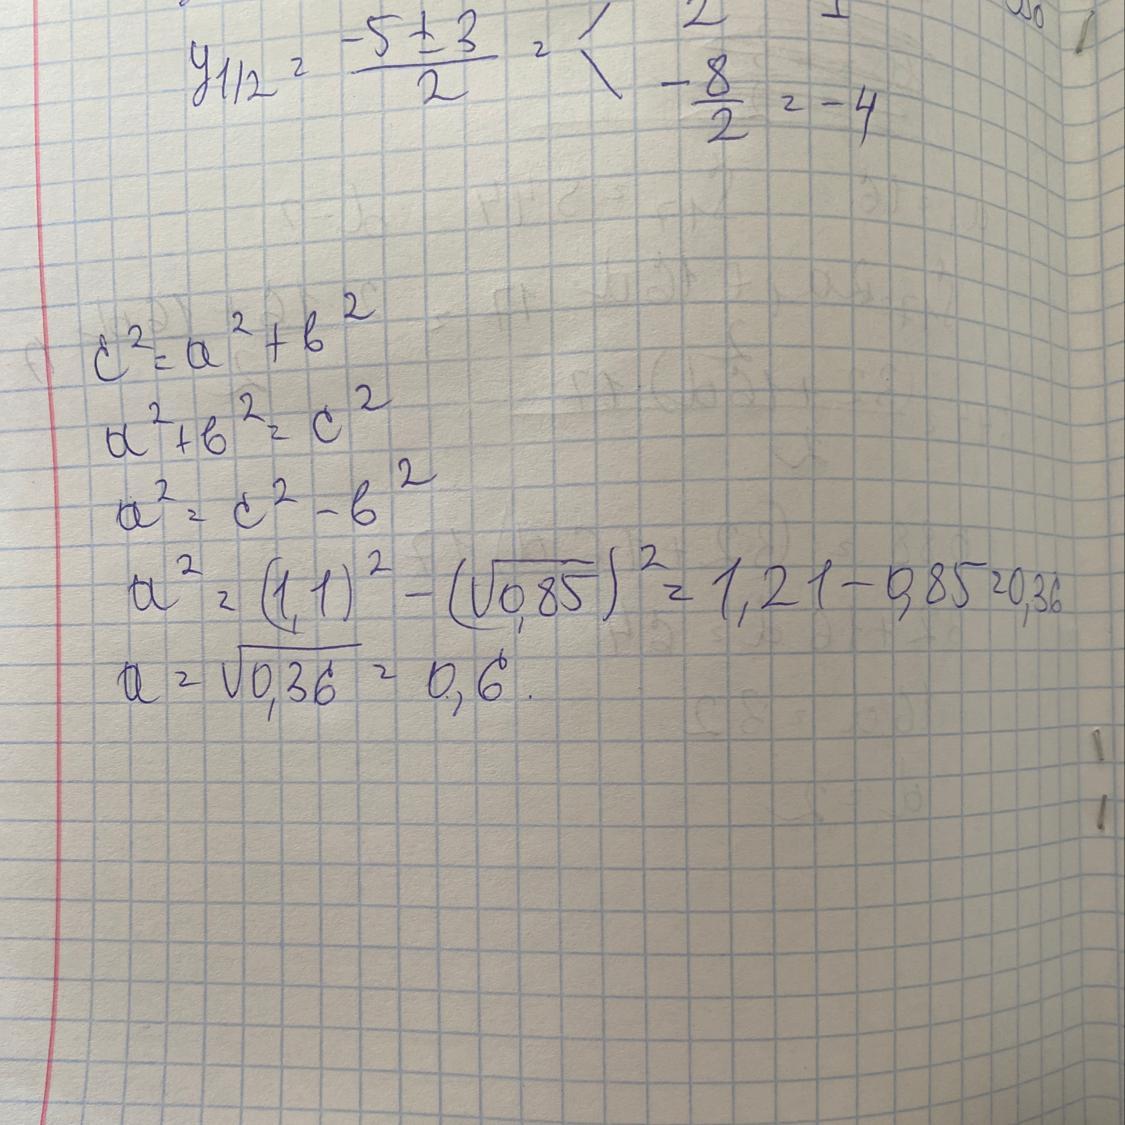 y1/2 = (-5 ± 3)/2 = < 2
-8/2 = -4
c² = a² + в²
a² + в² = c²
a² = c² - в²
a² = (1,1)² - (√0,85)² = 1,21 - 0,85 = 0,36
a = √0,36 = 0,6.